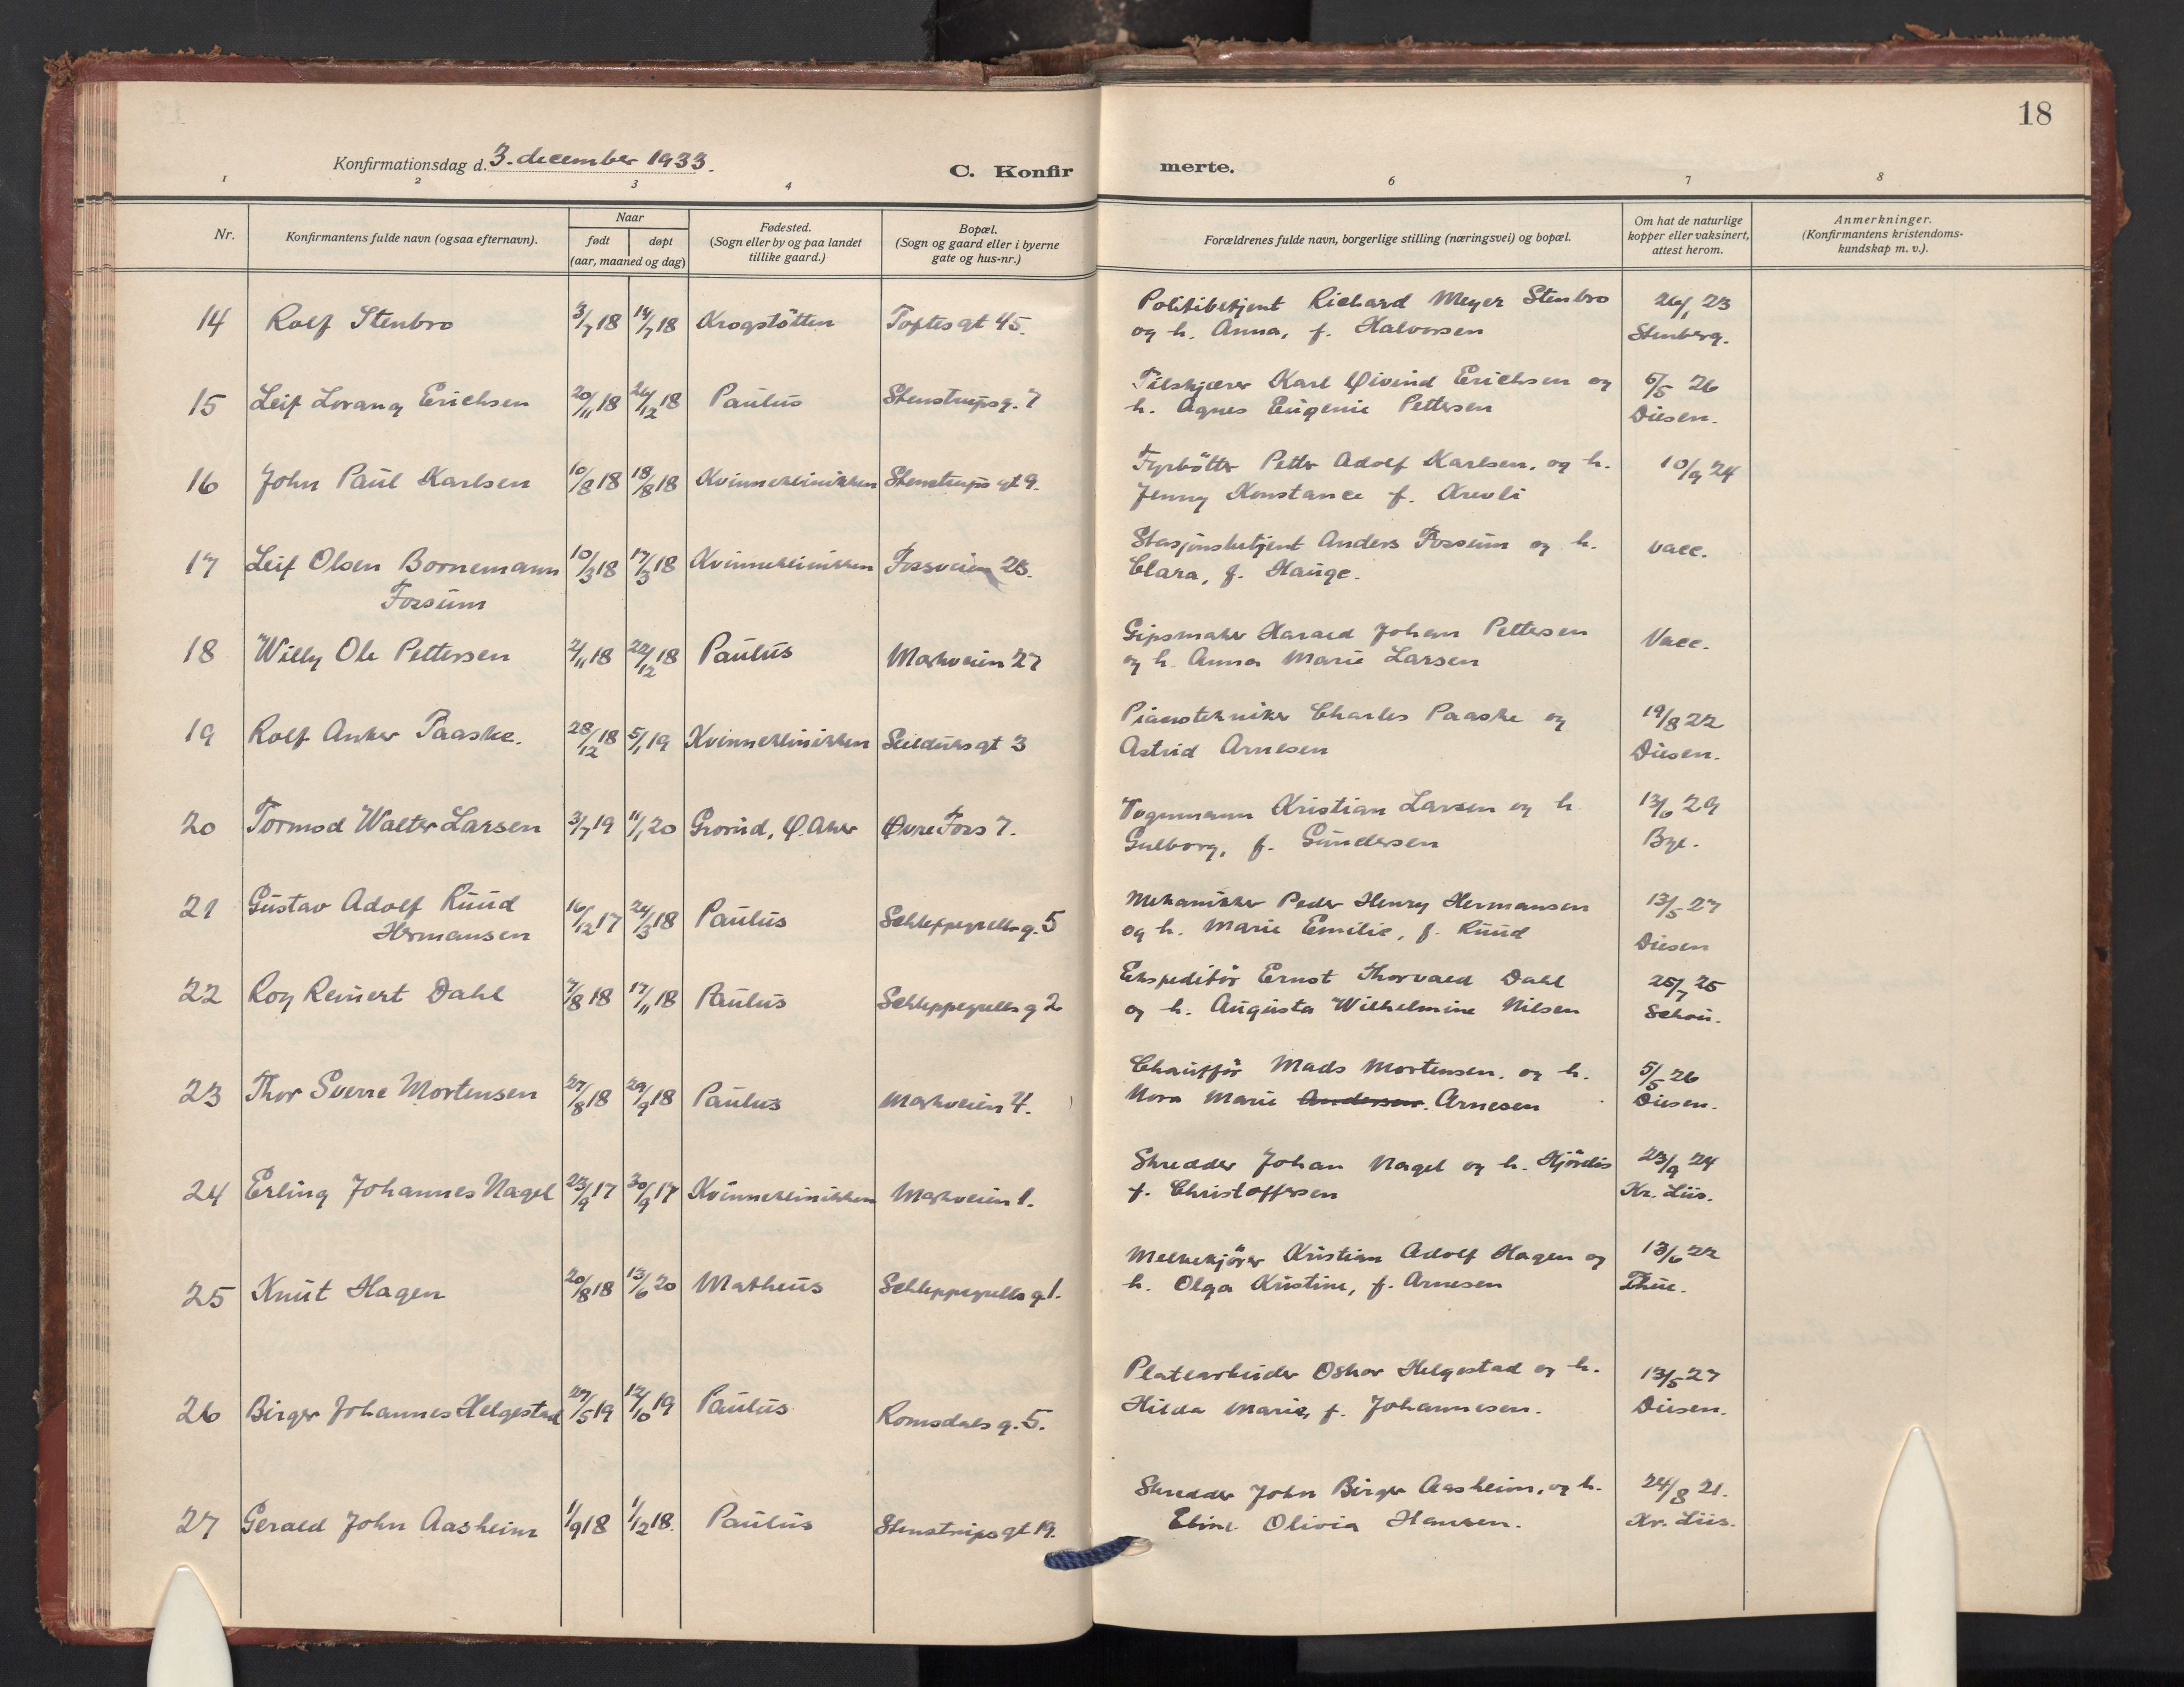 18
Konfirmationsdag d. 3. december 1933.
C. Konfir merte.
1 2 3 4 6 7 8
Nr. Konfirmantens fulde navn (ogsaa efternavn). Naar født døpt (aar, maaned og dag) Fødested. (Sogn eller by og paa landet tillike gaard.) Bopæl. (Sogn og gaard eller i byerne gate og hus-nr.) Forældrenes fulde navn, borgerlige stilling (næringsvei) og bopæl. Om hat de naturlige kopper eller vaksinert, attest herom. Anmerkninger. (Konfirmantens kristendoms-kundskap m. v.).
14 Rolf Stenbro 3/7 18 14/7 18 Krogstøtten Toftes gt 45. Politibetjent Richard Meyer Stenbro 26/1 23
og h. Anna, f. Halvorsen Stenberg.
15 Leif Lorang Erichsen 20/11 18 26/12 18 Paulus Stenstrupsg. 7 Filskjærer Karl Øivind Erichsen og 5/5 26
h. Agnes Eugenie Pettersen Diesen.
16 John Paul Karlsen 10/8 18 18/8 18 Kvinneklinikken Stenstrups gt 9. Fyrbøtter Petter Adolf Karlsen, og h. 10/9 24
Jenny Konstance f. Krevli
17 Leif Olsen Bornemann 10/3 18 17/3 18 Kvinneklinikken Fossveien 23. Stasjonsbetjent Anders Fossum og h. vacc.
Fossum Clara, f. Hauge.
18 Willy Ole Pettersen 2/11 18 22/12 18 Paulus Markveien 27 Gipsmaker Harald Johan Pettersen Vacc.
og h. Anna Marie Larsen
19 Rolf Anker Paaske. 28/12 18 5/1 19 Kvinneklinikken Seilduksgt 3 Pianotekniker Charles Paaske og 19/8 22
Astrid Arnesen Diesen.
20 Tormod Walter Larsen 3/7 19 11/1 20 Grorud, Ø. Aker Øvre Foss 7. Vognmann Kristian Larsen og h 13/6 29
Gulborg, f. Gundersen Bye.
21 Gustav Adolf Ruud 16/12 17 24/3 18 Paulus Schleppegrells g. 5 Mekanikker Peder Henry Hermansen 13/5 27
Hermansen og h. Marie Emilie, f. Ruud Diesen
22 Roy Reinert Dahl 7/8 18 17/11 18 Paulus Schleppegrells g 2 Ekspeditør Ernst Thorvald Dahl 25/7 25
og h. Augusta Wilhelmine Nilsen Schou.
23 Thor Sverre Mortensen 27/8 18 29/9 18 Paulus Markveien 4. Chauffør Mads Mortensen. og h. 5/5 26
Nora Marie Andersen. Arnesen Diesen.
24 Erling Johannes Nagel 23/9 17 30/9 17 Kvinneklinikken Markveien 1. Skredder Johan Nagel og h. Hjørdis 23/9 24
f. Christoffersen Kr. Liis.
25 Knut Hagen 20/8 18 13/6 20 Matheus Schleppegrells g. 1. Melkekjører Kristian Adolf Hagen og 13/6 22
h. Olga Kristine, f. Arnesen Thue.
26 Birger Johannes Helgestad 27/5 19 12/10 19 Paulus Romsdals g. 5. Platearbeider Oskar Helgestad og h. 13/5 27
Hilda Marie, f. Johannesen. Diesen.
27 Gerald John Aasheim 1/9 18 1/12 18. Paulus Stenstrups gt 19. Skredder John Birger Aasheim, og h. 24/8 21.
Eline Olivia Hansen. Kr. Liis.